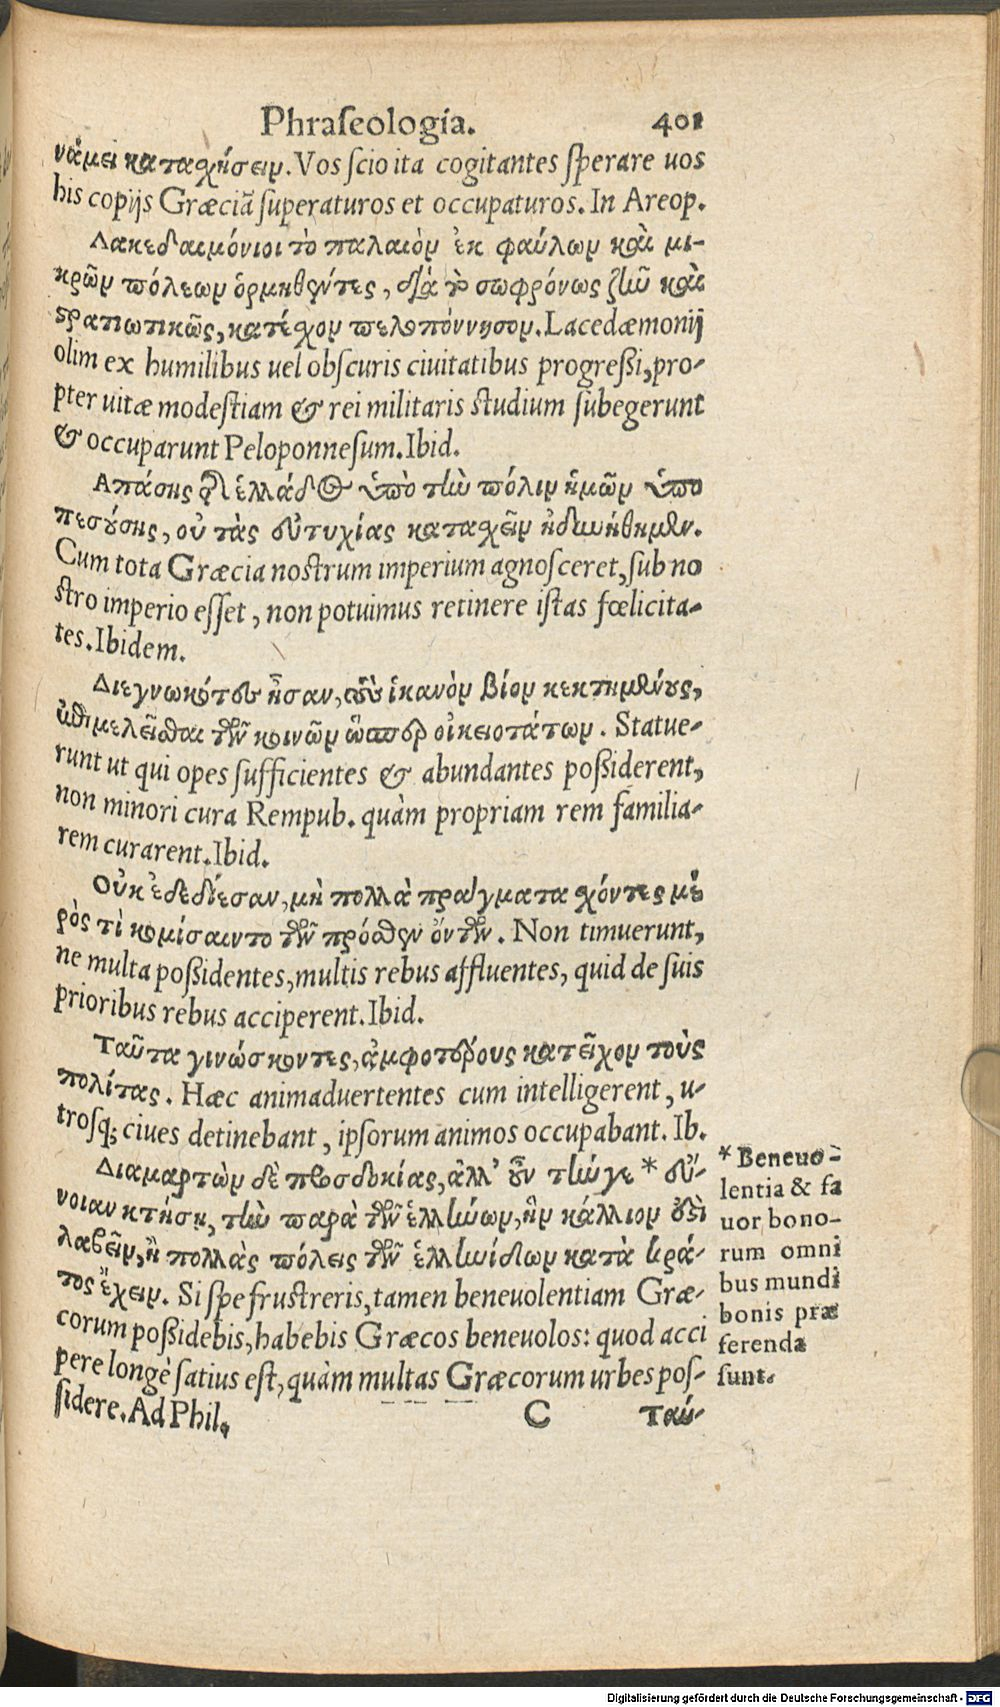 Phraſeologia. 401
νάμει κατασχήσειν. Vos ſcio ita cogitantes ſperare uos
his copijs Græciā ſuperaturos et occupaturos. In Areop.
Λακεδαιμόνιοι τὸ παλαιὸν ἐκ φαύλων καὶ μι-
κρῶν πόλεων ὁρμηθέντες, διὰ τὸ σωφρόνως ζῆν καὶ
στρατιωτικῶς, κατέσχον πελοπόννησον. Lacedæmonij
olim ex humilibus uel obſcuris ciuitatibus progreſſi, pro-
pter uitæ modeſtiam & rei militaris ſtudium ſubegerunt
& occuparunt Peloponneſum. Ibid.
Απάσης τῆς ἑλλάδος ὑπὸ τὴν πόλιν ἡμῶν ὑπο
πεσούσης, οὐ τὰς εὐτυχίας κατασχεῖν ἠδυνήθημεν.
Cum tota Græcia noſtrum imperium agnoſceret, ſub no
ſtro imperio eſſet, non potuimus retinere iſtas fœlicita-
tes. Ibidem.
Διεγνωκότες ἦσαν, τοὺς ἱκανὸν βίον κεκτημένους,
ἐπιμελεῖσθαι τῶν κοινῶν ὥσπερ οἰκειοτάτων. Statue-
runt ut qui opes ſufficientes & abundantes poſſiderent,
non minori cura Rempub. quàm propriam rem familia-
rem curarent. Ibid.
Οὐκ ἐδεδίεσαν, μὴ πολλὰ πράγματα σχόντες μέ
ρὸς τὶ κομίσαιντο τῶν πρόσθεν ὄντων. Non timuerunt,
ne multa poſſidentes, multis rebus affluentes, quid de ſuis
prioribus rebus acciperent. Ibid.
Ταῦτα γινώσκοντες, ἀμφοτέρους κατεῖχον τοὺς
πολίτας. Hæc animaduertentes cum intelligerent, u-
troſq; ciues detinebant, ipſorum animos occupabant. Ib.
Διαμαρτὼν δὲ προσδοκίας, ἀλλ' οὖν τήν γε * εὔ-
νοιαν κτήσῃ, τὴν παρὰ τῶν ἑλλήνων, ἣν κάλλιον ἐστὶ
λαβεῖν, ἢ πολλὰς πόλεις τῶν ἑλληνίδων κατὰ κρά-
τος ἔχειν. Si ſpe fruſtreris, tamen beneuolentiam Græ-
corum poſſidebis, habebis Græcos beneuolos: quod acci
pere longè ſatius eſt, quàm multas Græcorum urbes poſ-
ſidere. Ad Phil.
* Beneuo-
lentia & fa
uor bono-
rum omni
bus mundi
bonis præ
ferenda
ſunt.
C Ταύ-
Digitalisierung gefördert durch die Deutsche Forschungsgemeinschaft - DFG